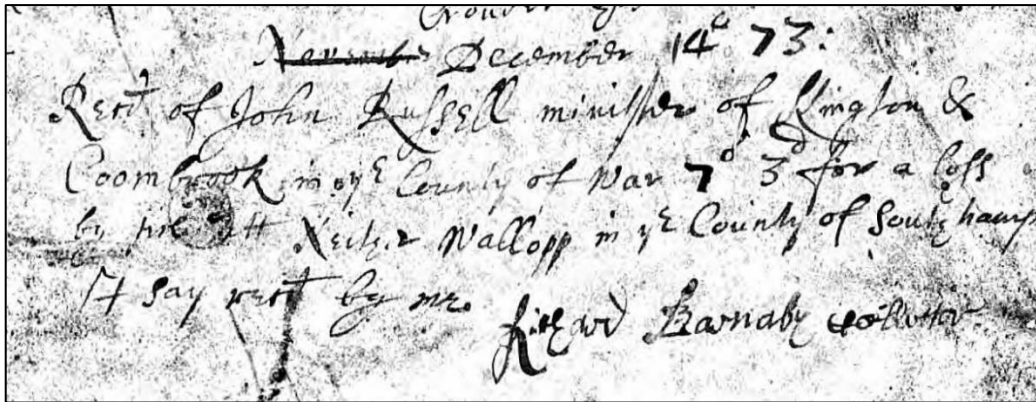 November December 14th 73:
Rect of John Russell minister of Kington &
Coombrook in ye County of War 7s 3d for a loss
by fire att Neither Wallopp in ye County of Southam
I say rect by me
Richard Barnaby Collector